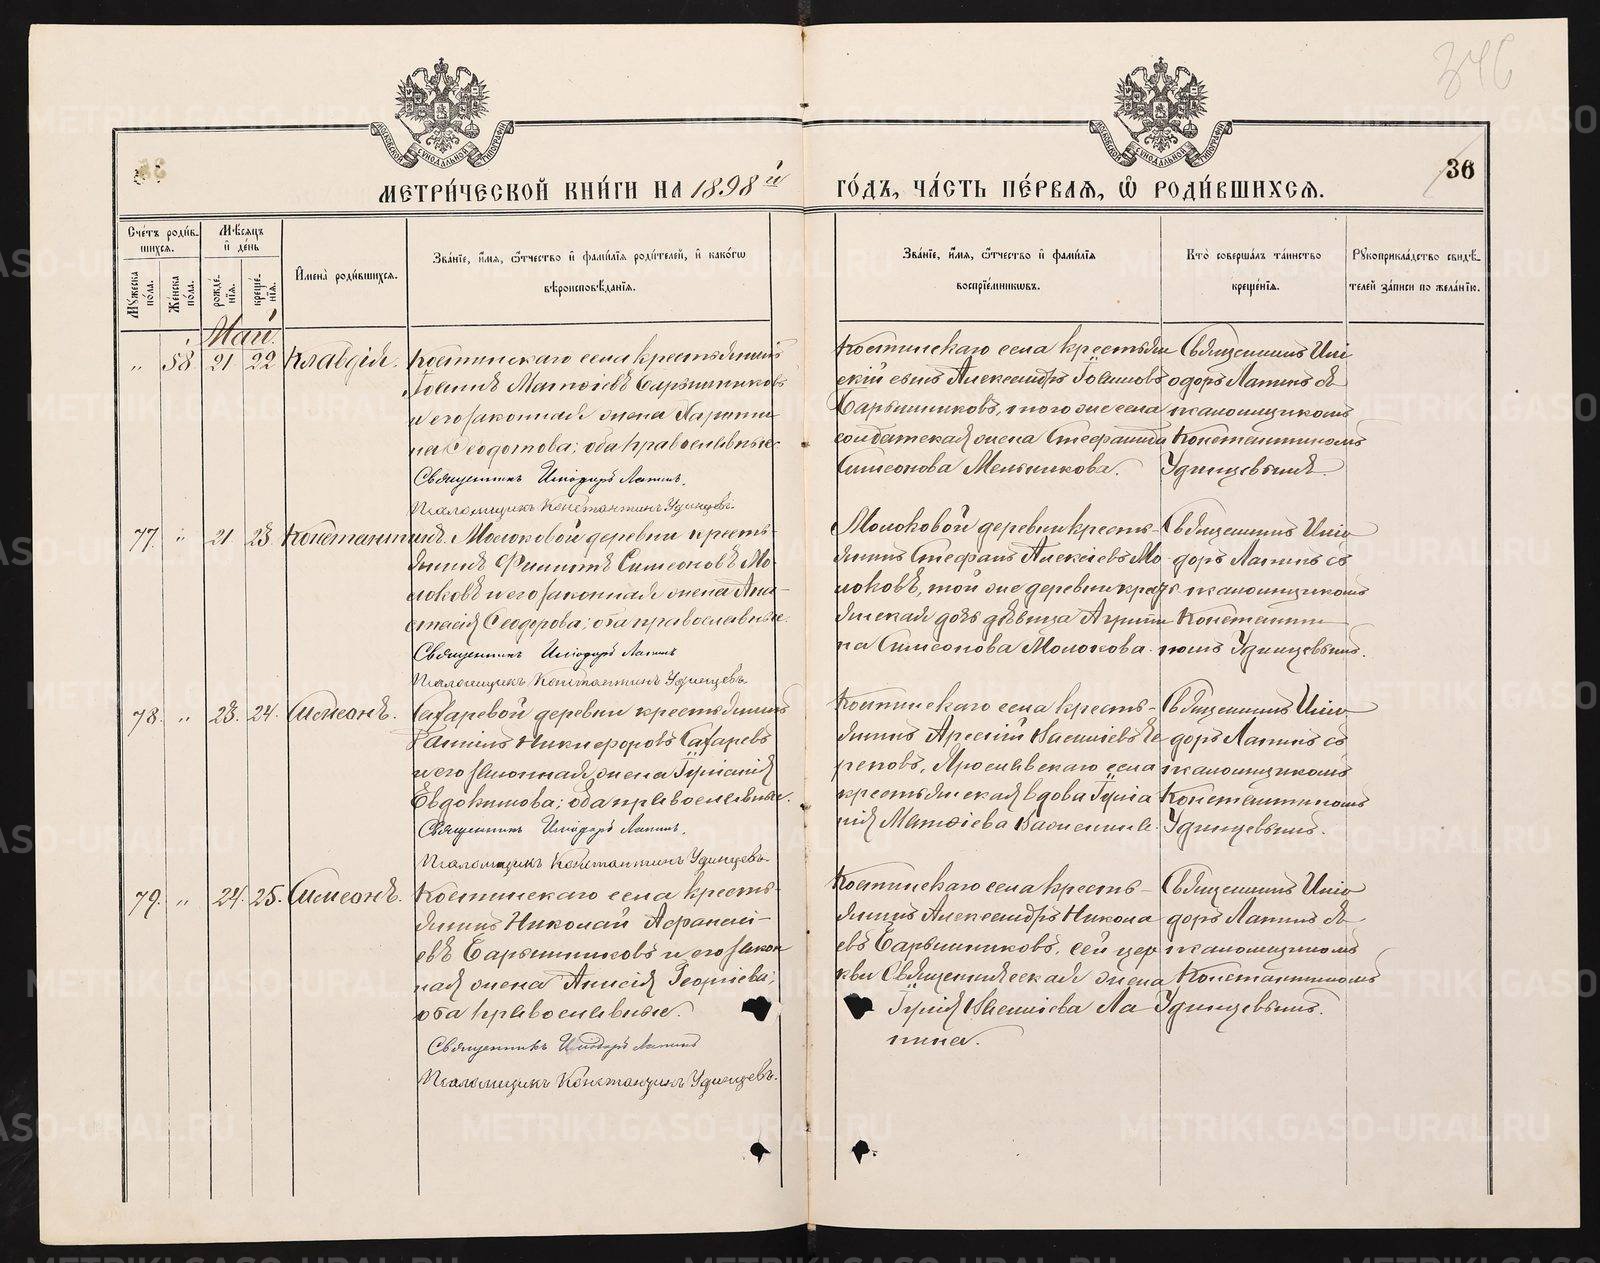 346
36
МЕТРИ́ЧЕСКОЙ КНИ́ГИ НА 1898й
ГО́ДЪ, ЧА́СТЬ ПЕ́РВАѦ, Ѡ҆ РОДИ́ВШИХСѦ.
МОСКОВСКОЙ СѴНОДАЛЬНОЙ ТИПОГРАФІИ
МОСКОВСКОЙ СѴНОДАЛЬНОЙ ТИПОГРАФІИ
Сче́тъ роди́в-
шихсѧ.
Мѣ́сѧцъ
и҆ де́нь
Мꙋ́жеска по́ла.
Же́нска по́ла.
рожде́-нїѧ.
креще́-нїѧ.
И҆мена̀ роди́вшихсѧ.
Зва́нїе, и҆́мѧ, ѻ҆́тчество и҆ фами́лїѧ роди́телей, и҆ како́гѡ
вѣроисповѣ́данїѧ.
Зва́нїе, и҆́мѧ, ѻ҆́тчество и҆ фами́лїѧ
воспрїе́мникѡвъ.
Кто̀ соверша́лъ та́инство
креще́нїѧ.
Рꙋкоприкла́дство свидѣ́-
телей за́писи по жела́нїю.
Май.
„ 58 21 22 Клавдія.
Костинскаго села крестьянинъ
Іоаннъ Матѳіевъ Барышниковъ
и его законная жена Харити-
на Ѳеодотова; оба православные
Священникъ Исидоръ Лапинъ.
Псаломщикъ Константинъ Удинцевъ.
Костинскаго села крестьян
скій сынъ Александръ Іоанновъ
Барышниковъ, того же села
солдатская жена Стефанида
Симеонова Мельникова.
Священникъ Иси
одоръ Лапинъ съ
псаломщикомъ
Константиномъ
Удинцевымъ.
77. „ 21 23. Константинъ.
Молоковой деревни кресть-
янинъ Филиппъ Симеоновъ Мо-
локовъ и его законная жена Ана-
стасія Ѳеодорова; оба православные.
Священникъ Исидоръ Лапинъ
Псаломщикъ Константинъ Удинцевъ
Молоковой деревни кресть-
янинъ Стефанъ Алексіевъ Мо-
локовъ, той же деревни кресть
янская дочь дѣвица Агрипи
на Симеонова Молокова.
Священникъ Исио
доръ Лапинъ съ
псаломщикомъ
Константи
номъ Удинцевымъ.
78. „ 23. 24. Симеонъ.
Сахаревой деревни крестьянинъ
Никифоровъ Сахаревъ
и его законная жена Іуліанія
Евдокимова; оба православные.
Священникъ Исидоръ Лапинъ.
Псаломщикъ Константинъ Удинцевъ
Костинскаго села кресть-
янинъ Арсеній Василіевъ Се
рковъ, Ярославскаго села
крестьянская вдова Іуліа
нія Матѳіева
Священникъ Исио
доръ Лапинъ съ
псаломщикомъ
Константиномъ
Удинцевымъ.
79. „ 24. 25. Симеонъ.
Костинскаго села кресть-
янинъ Николай Аѳанасі-
евъ Барышниковъ и его закон
ная жена Анисія Георгіева;
оба православные.
Священникъ Исидоръ Лапинъ
Псаломщикъ Константинъ Удинцевъ.
Костинскаго села кресть-
янинъ Александръ Никола
евъ Барышниковъ, сей цер
кви Священническая жена
Іулія Василіева Ла
пина.
Священникъ Исио
доръ Лапинъ съ
псаломщикомъ
Константиномъ
Удинцевымъ.
METRIKI.GASO-URAL.RU